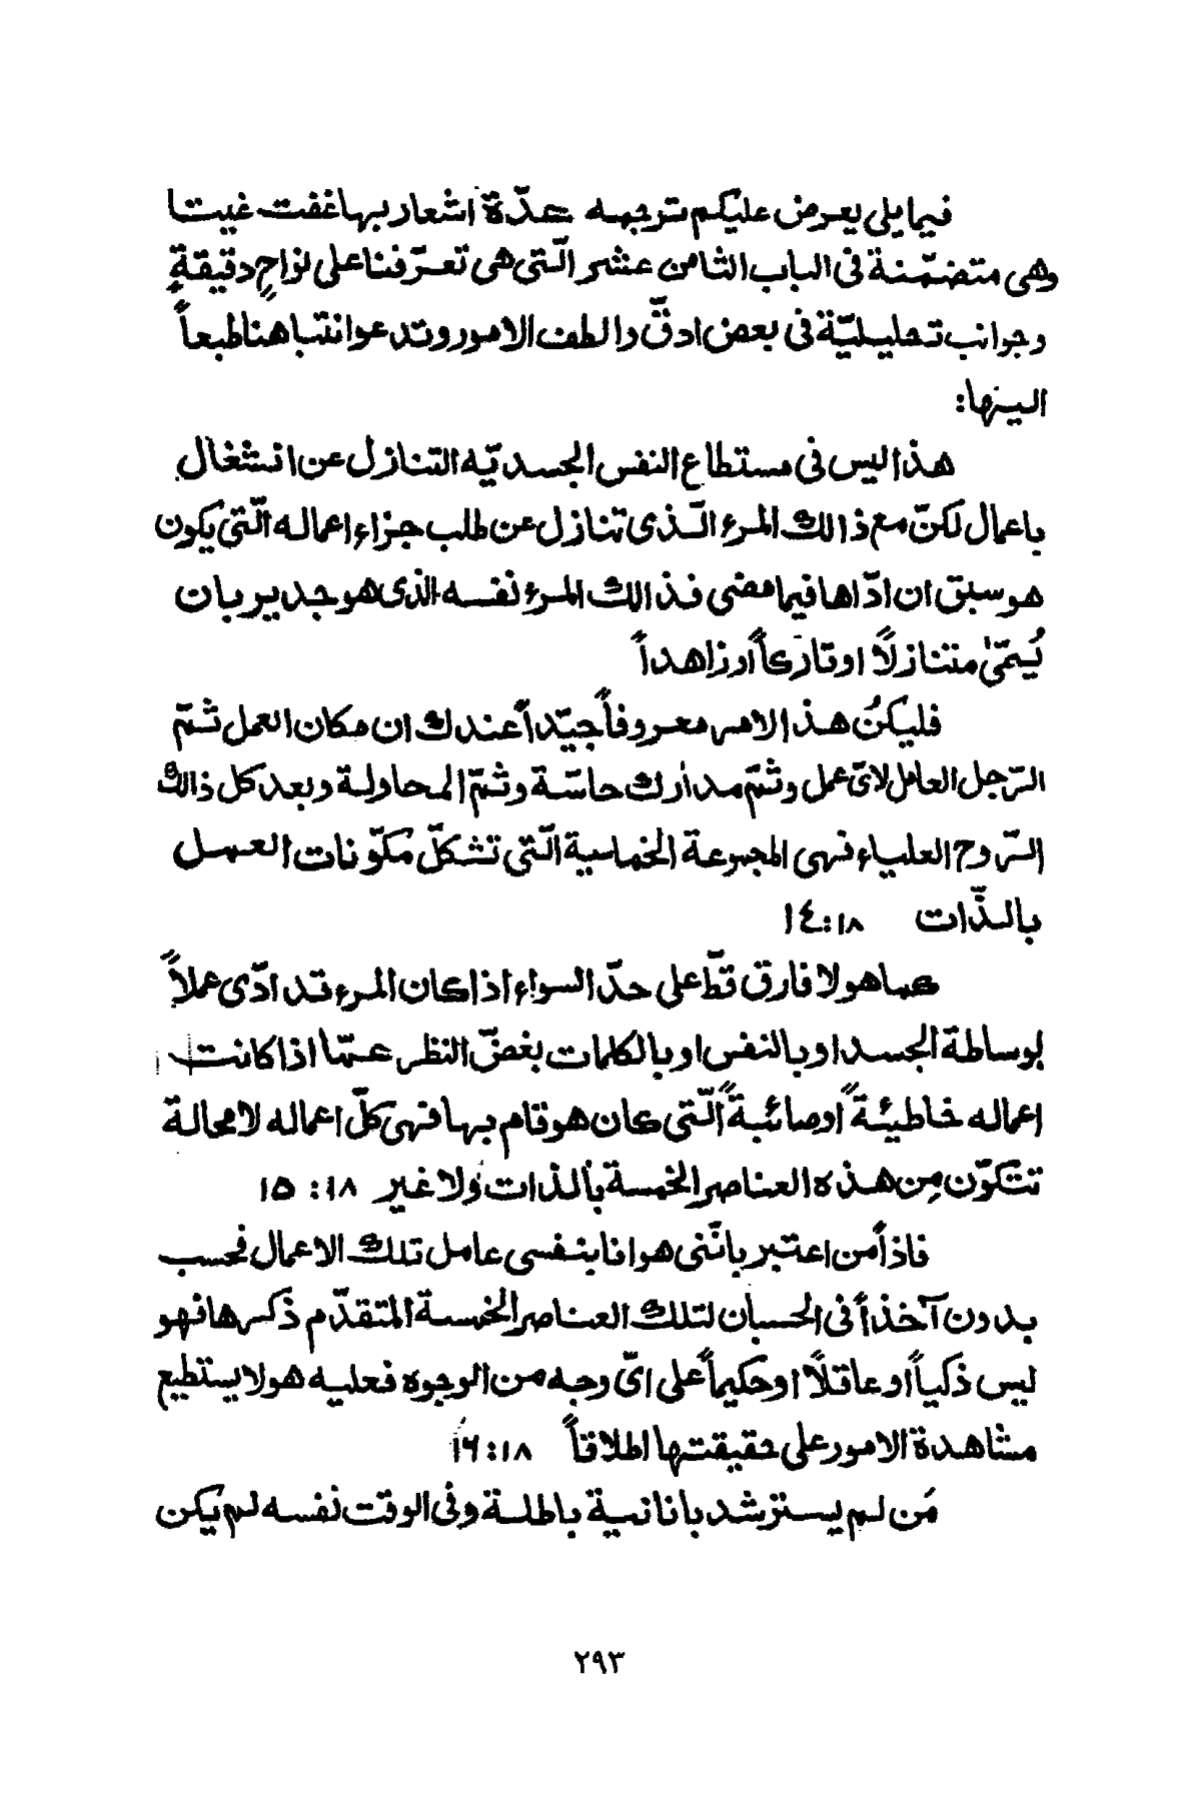 فيما يلى يعرض عليكم ترجمه عدّة اشعار بهاغفت غيتا
وهى متضمّنة فى الباب الثامن عشر الّتى هى تعرّفنا على نواحٍ دقيقةٍ
وجوانب تحليليّة فى بعض ادقّ والطف الامور وتدعو انتباهنا طبعاً
اليـنها:
هذا ليس فى مستطاع النفس الجسديّه التنازل عن انشغال
باعمال لكنّ مع ذالك المرء الّذى تنازل عن طلب جزاء اعماله الّتى يكون
هو سبق ان ادّاها فيما مضى فذالك المرء نفسه الذى هو جدير بان
يُسمّىٰ متنازلاً او تاركاً او زاهداً
فليكنُ هذا الامر معروفاً جيّداً عندك ان مكان العمل ثمّ
الرّجل العامل لاىّ عمل وثمّ مدارك حاسّة وثمّ المحاولة وبعد كل ذالك
الرّوح العلياء فهى المجموعة الخماسية الّتى تشكلّ مكوّنات العمل
بالذّات ١٨:١٤
كما هو لا فارق قطّ على حدّ السواء اذا كان المرء قد ادّى عملاً
بوساطة الجسد او بالنفس او بالكلمات بغضّ النظر عمّا اذا كانت
اعماله خاطيئةً او صائبةً الّتى كان هو قام بها فهى كلّ اعماله لا محالة
تتكوّن مِن هذه العناصر الخمسة بالذات ولا غير ١٨:١٥
فاذاً من اعتبر بانّنى هو انا بنفسى عامل تلك الاعمال فحسب
بدون آخذاً فى الحسبان لتلك العناصر الخمسة المتقدّم ذكرها فهو
ليس ذكياً او عاقلاً او حكيماً على اىّ وجه من الوجوه فعليه هو لا يستطيع
مشاهدة الامور على حقيقتها اطلاقاً ١٨:١٦
مَن لم يسترشد بانانية باطلة وفى الوقت نفسه لم يكن
٢٩٣